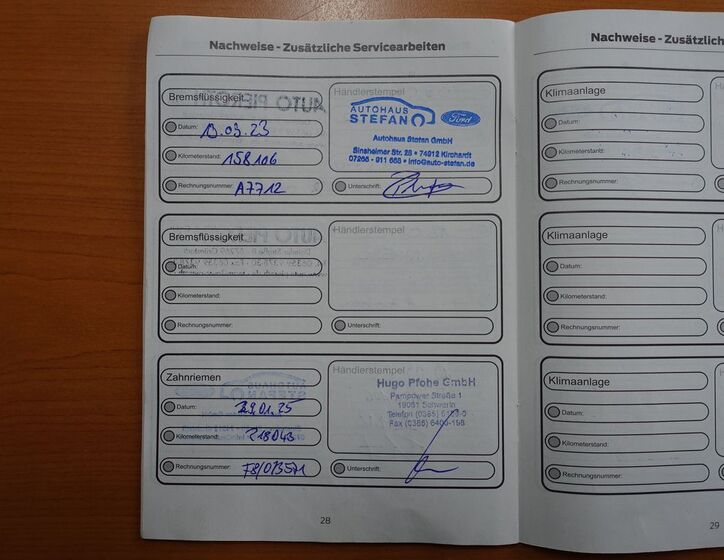 Nachweise - Zusätzliche Servicearbeiten
Bremsflüssigkeit
Datum:
.03.23
Kilometerstand: 158106
Rechnungsnummer: A7712
Händlerstempel
AUTOHAUS
STEFAN
Ford
Autohaus Stefan GmbH
Sinsheimer Str. 28 • 74912 Kirchardt
07266 - 911 668 • info@auto-stefan.de
Unterschrift:
Bremsflüssigkeit
Datum:
Kilometerstand:
Rechnungsnummer:
Händlerstempel
Unterschrift:
Zahnriemen
Datum: 29.01.25
Kilometerstand: 218043
Rechnungsnummer:
Händlerstempel
Hugo Pfohe GmbH
Pampower Straße 1
19061 Schwerin
Telefon (0385)
Fax (0385) 6400-198
Unterschrift:
28
Nachweise - Zusätzlich
Klimaanlage
Datum:
Kilometerstand:
Rechnungsnummer:
Klimaanlage
Datum:
Kilometerstand:
Rechnungsnummer:
Klimaanlage
Datum:
Kilometerstand:
Rechnungsnummer:
29